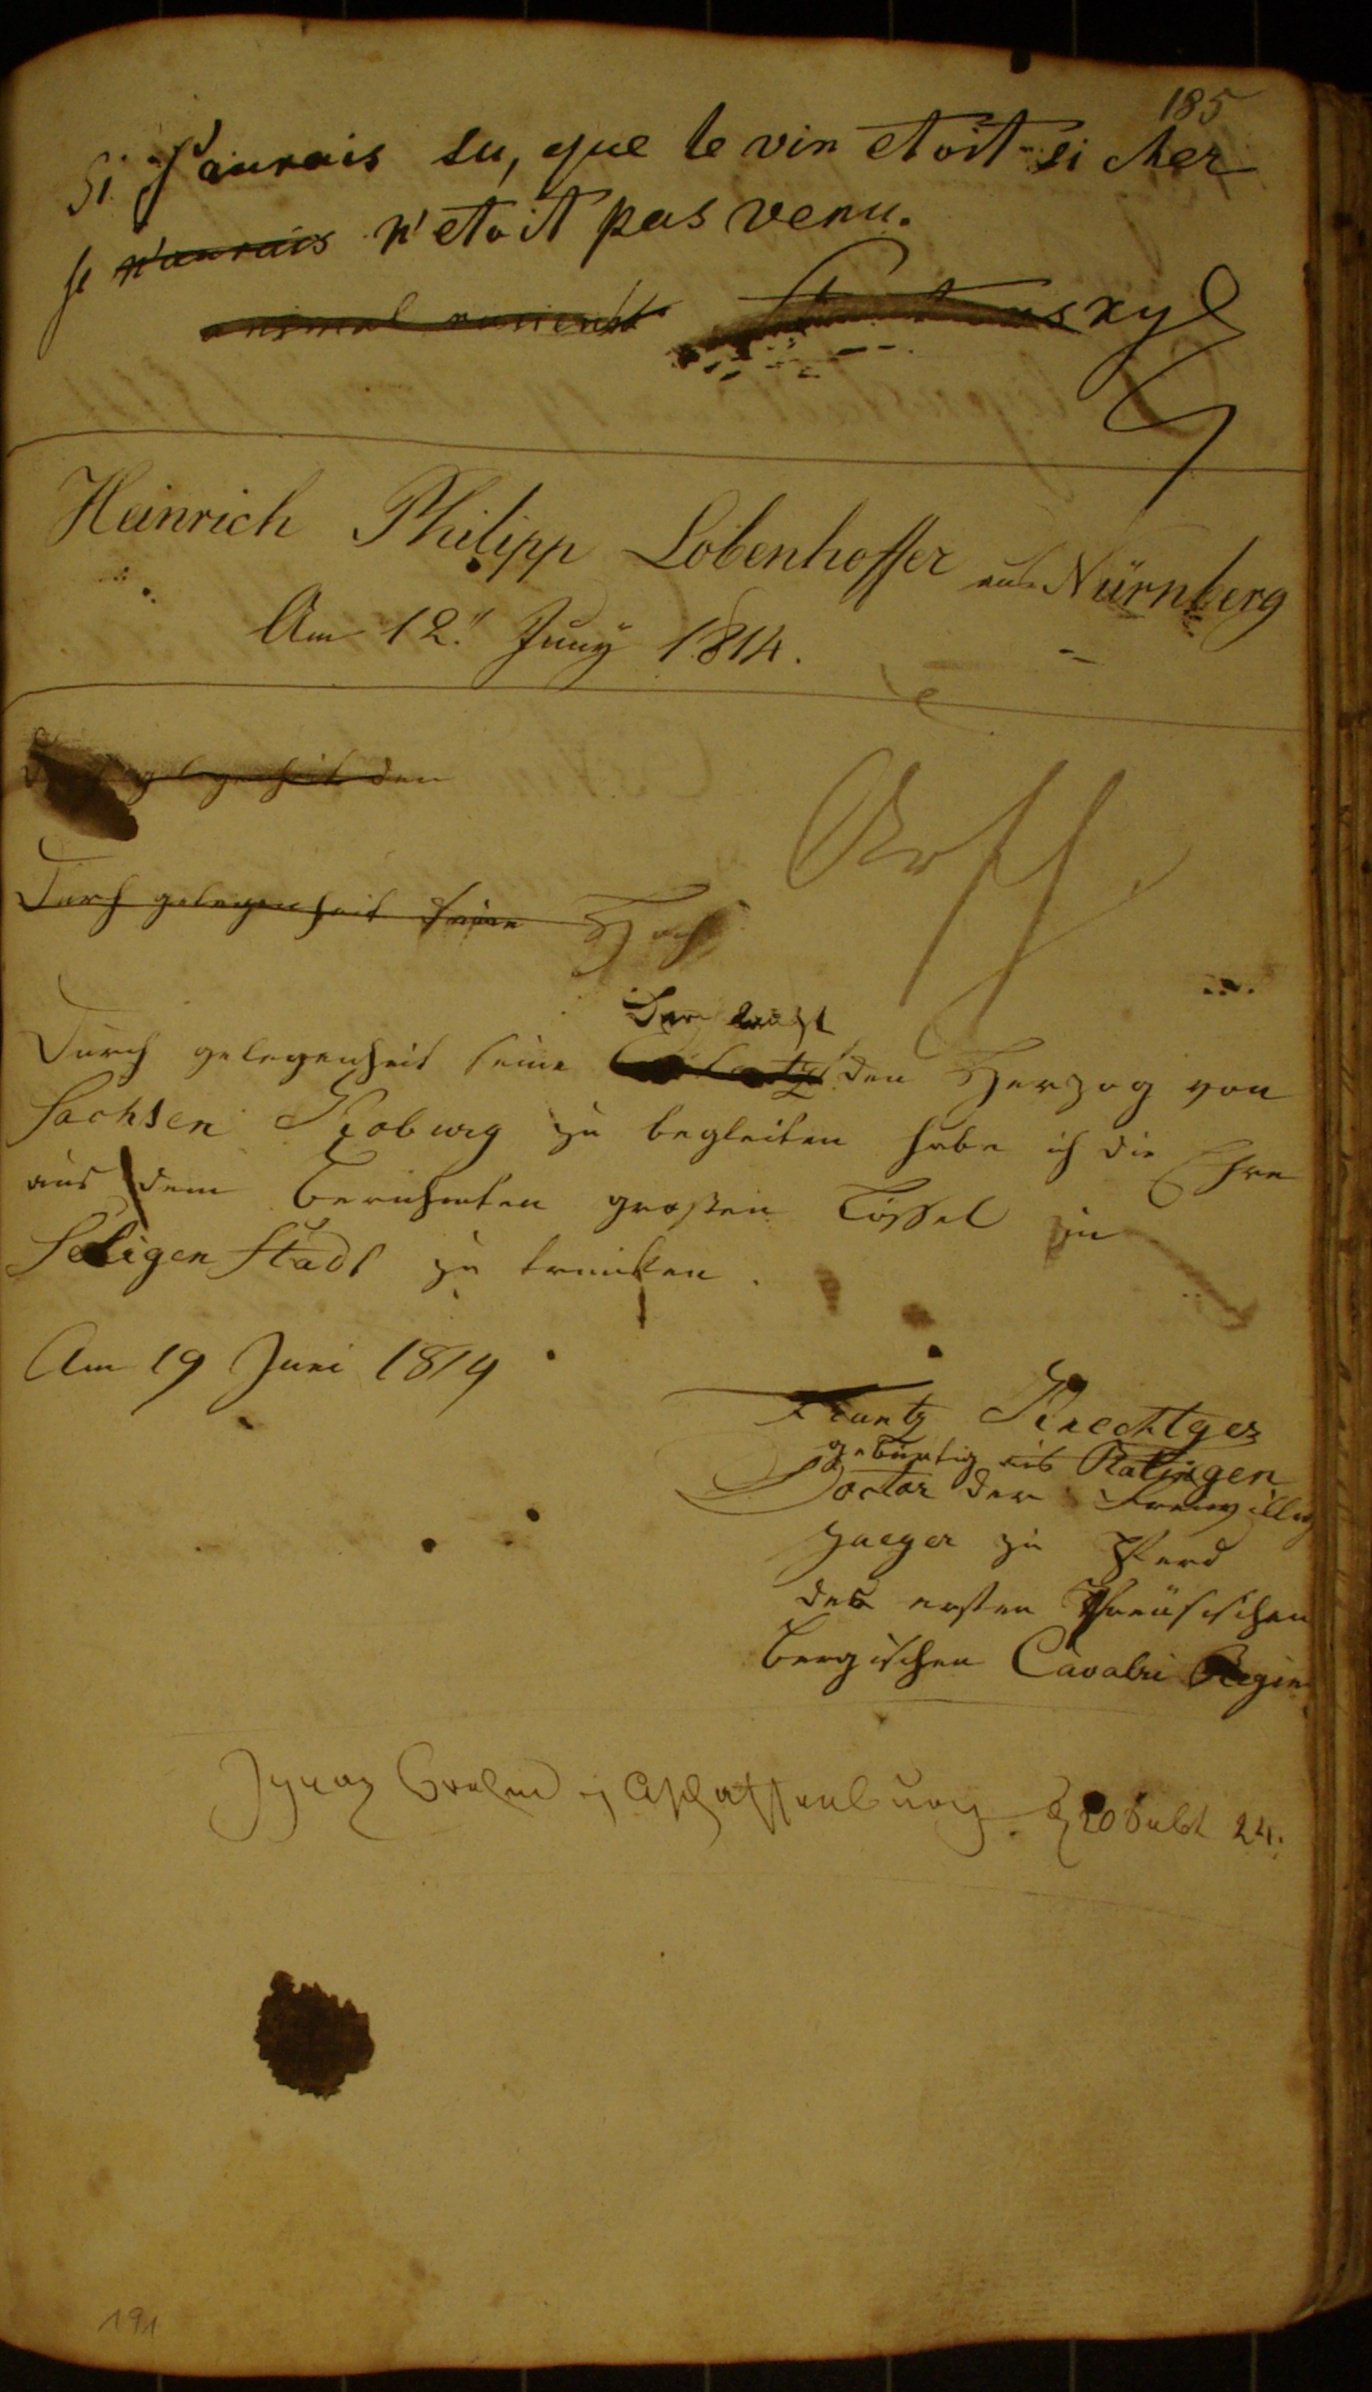 185
Si J'aurais su, que le vin etoit si cher
je n'aurais n'etoit pas venu.
animal
Heinrich Philipp Lobenhoffer aus Nürnberg
Am 12. Juny 1814.
gelegenheit den
Durch gelegenheit seine Hoch
Durchlaucht
Durch gelegenheit seine den Herzog von
Sachsen Koburg zu begleiten habe ich die Ehre
aus dem berühmten großen Löffel in
Seligenstadt zu trinken.
Am 19 Juni 1814
Frantz Knechtges
gebürtig aus Ratingen
Doctor der Freywillig
Jaeger zu Pferd
des ersten Preusischen
Bergischen Cavalri Regim
Ignaz Aschaffenburg 24.
191